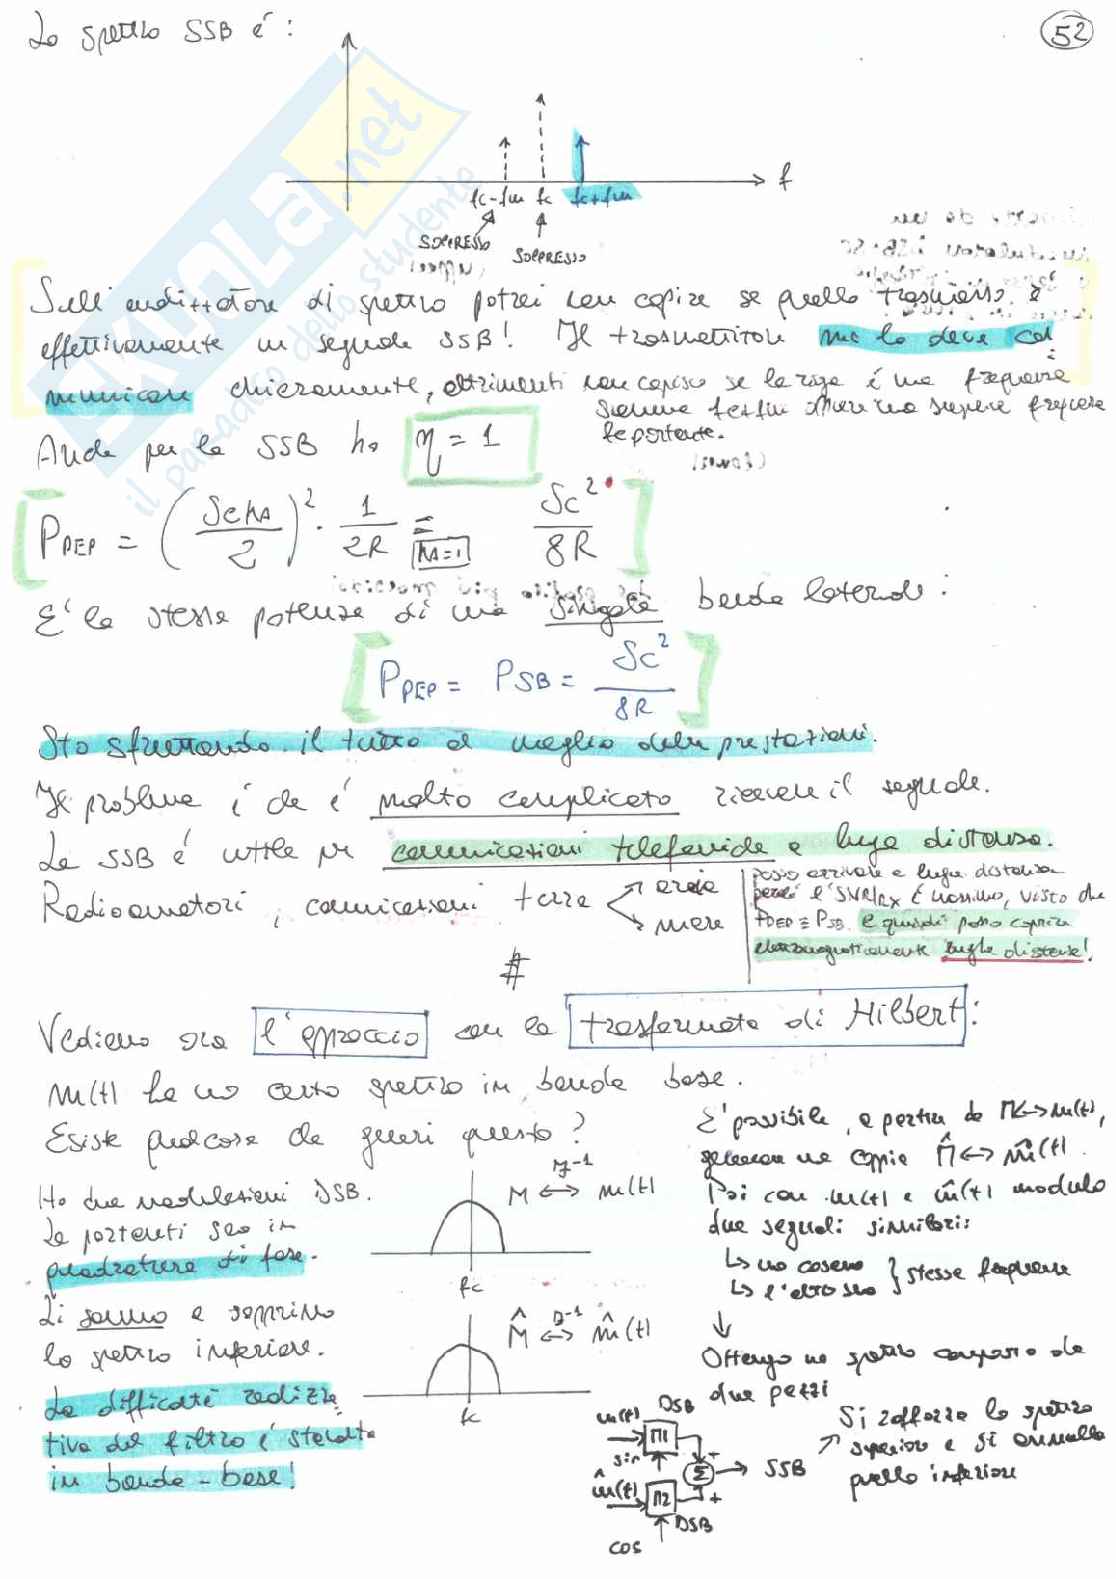 Lo spettro SSB é :
52
f
fc-fm fc fc+fm
SOPPRESSO
SOPPRESSO
(UPPER)
Sull' analizzatore di spettro potrei non capire se quello trasmesso é
effettivamente un segnale SSB! Il trasmettitore me lo deve co
municare chiaramente, altrimenti non capisco se la riga é una frequenza
somma fc+fm oppure una
portante.
(LOWER)
Anche per la SSB ho η = 1
PPEP = (ScKA/2)² · 1/2R = Sc²/8R
KA=1
E' la stessa potenza di una singola banda laterale:
PPEP = PSB = Sc²/8R
Sto sfruttando il tutto al meglio delle prestazioni.
Il problema é che é molto complicato ricevere il segnale.
La SSB é utile per comunicazioni telefoniche a lunga distanza.
Radioamatori, comunicazioni terra
aria
mare
posso arrivare a lunga distanza
perché l'SNR|RX É massimo, visto che
PPEP ≡ PSB. e quindi posso coprire
elettromagneticamente lunghe distanze!
#
Vediamo ora l'approccio con la trasformata di Hilbert:
m(t) ha uno certo spettro in banda base.
Esiste qualcosa che generi questo?
Ho due modulazioni DSB.
Le portanti sono in
quadratura di fase.
Li sommo e sopprimo
lo spettro inferiore.
La difficoltà realizza
tiva del filtro é stata
in banda-base!
M ↔ m(t)
F-1
fc
M̂ ↔ m̂(t)
F-1
fc
E' possibile, a partire da M↔m(t),
generare una copia M̂ ↔ m̂(t).
Poi con m(t) e m̂(t) modulo
due segnali sinusoidali:
↳ uno coseno
↳ l'altro seno
} stessa frequenza
↓
Ottengo uno spettro composto da
due pezzi
Si rafforza lo spettro
superiore e si annulla
quello inferiore
m(t) Π1 DSB
sin
-
Σ → SSB
m̂(t) Π2 +
DSB
cos